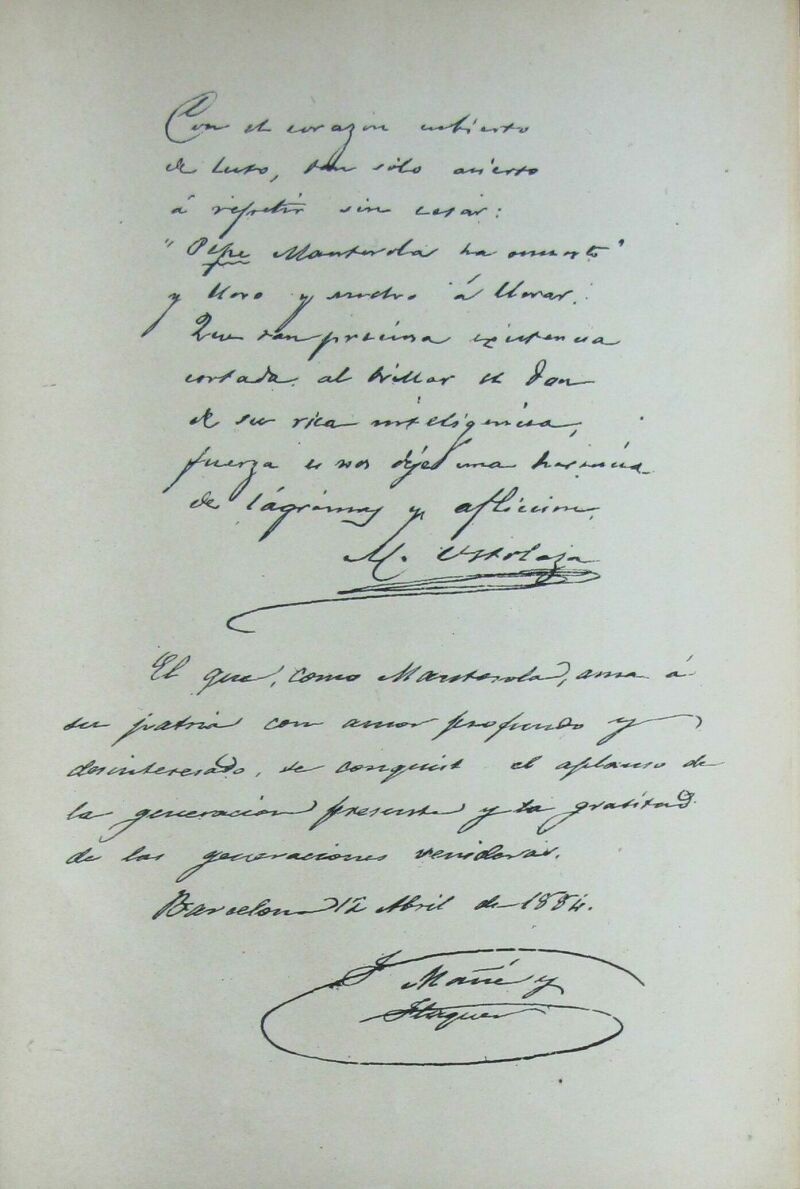 Con el corazon cubierto
de luto, tan sólo acierto
á repetir sin cesar:
"Pepe Manterola ha muerto"
y lloro y vuelvo á llorar.
Que tan preciosa existencia
cortada al brillar el don
de su rica inteligencia,
fuerza es nos deje una herencia
de lágrimas y afliccion.
M. Ustolaza
El que, como Manterola, ama á
su patria con amor profundo y
desinteresado, se conquist el aplauso de
la generacion presente y la gratitud
de las generaciones venideras.
Barcelona 12 Abril de 1884.
J Mañé y
Flaquer